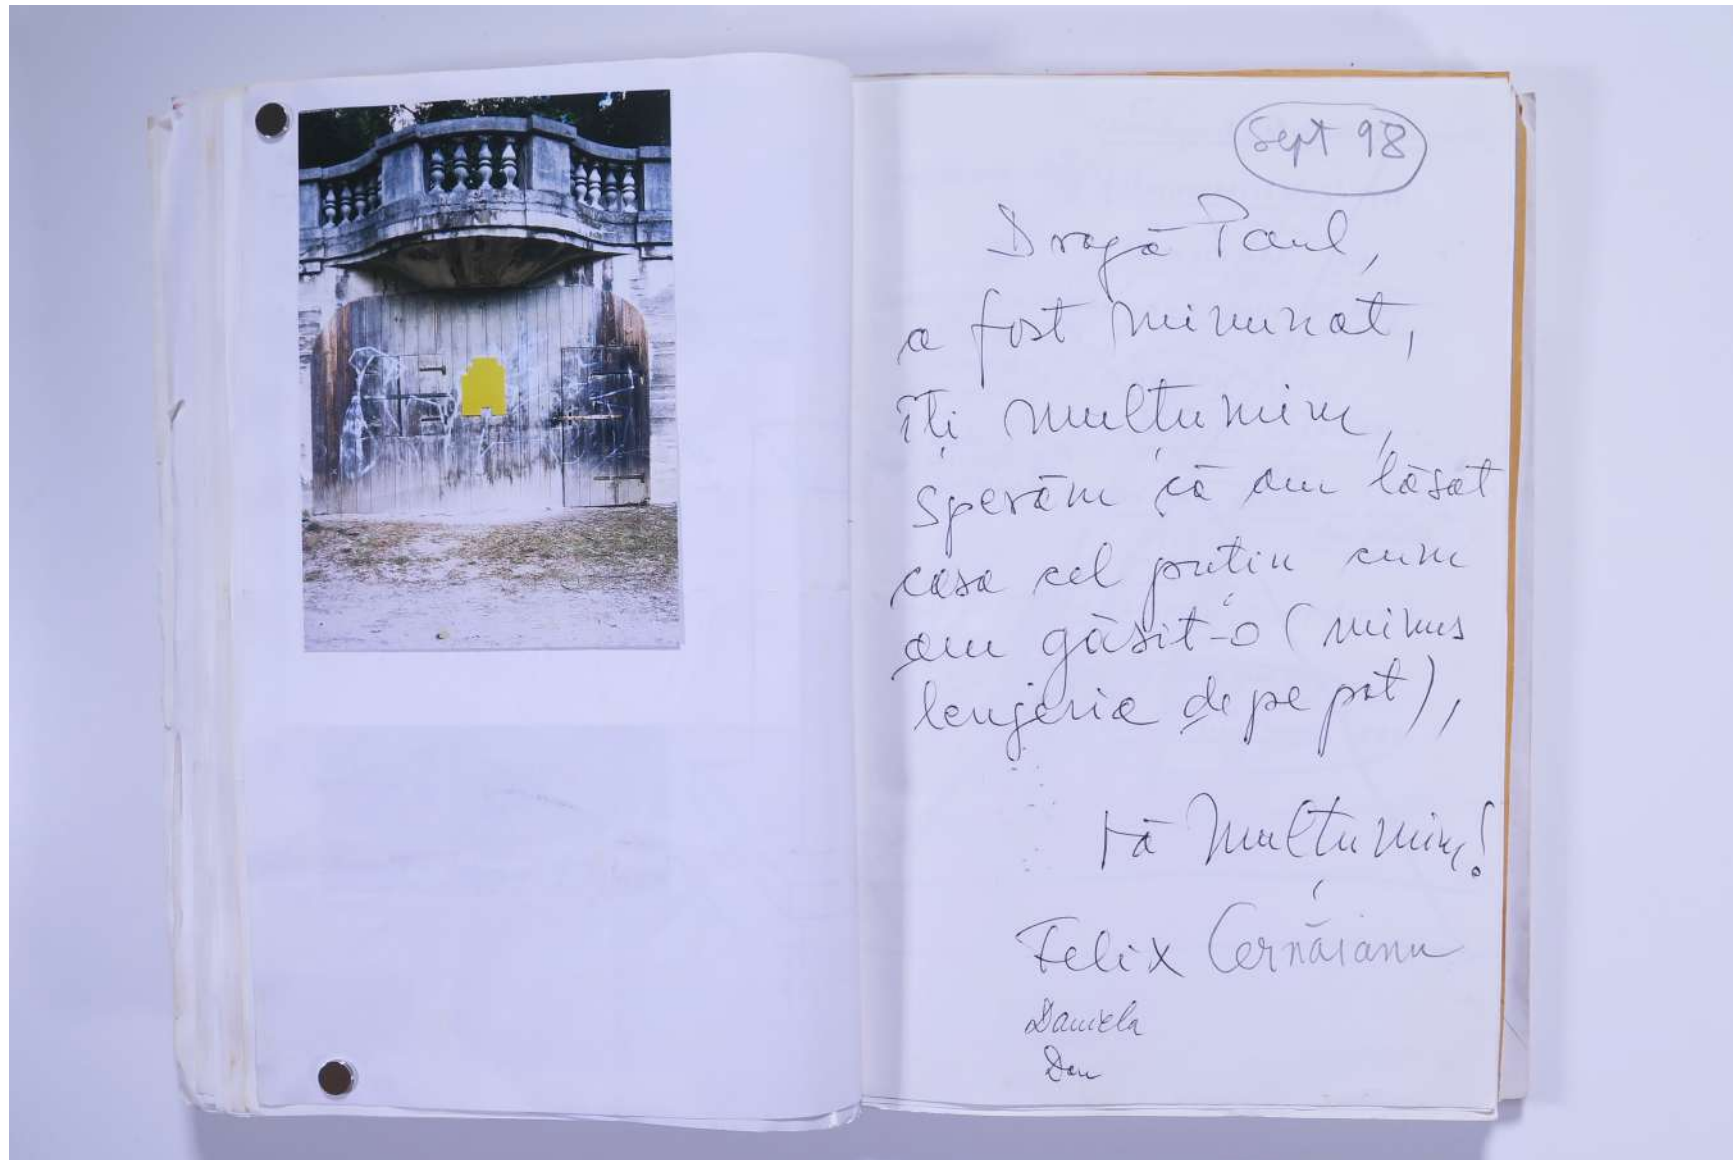 Sept 98
Dragă Paul,
a fost minunat,
îți mulțumim,
sperăm că am lăsat
casa cel puțin cum
am găsit-o (minus
lenjeria de pe pat),
vă mulțumim!
Felix Cernăianu
Daniela
Dan